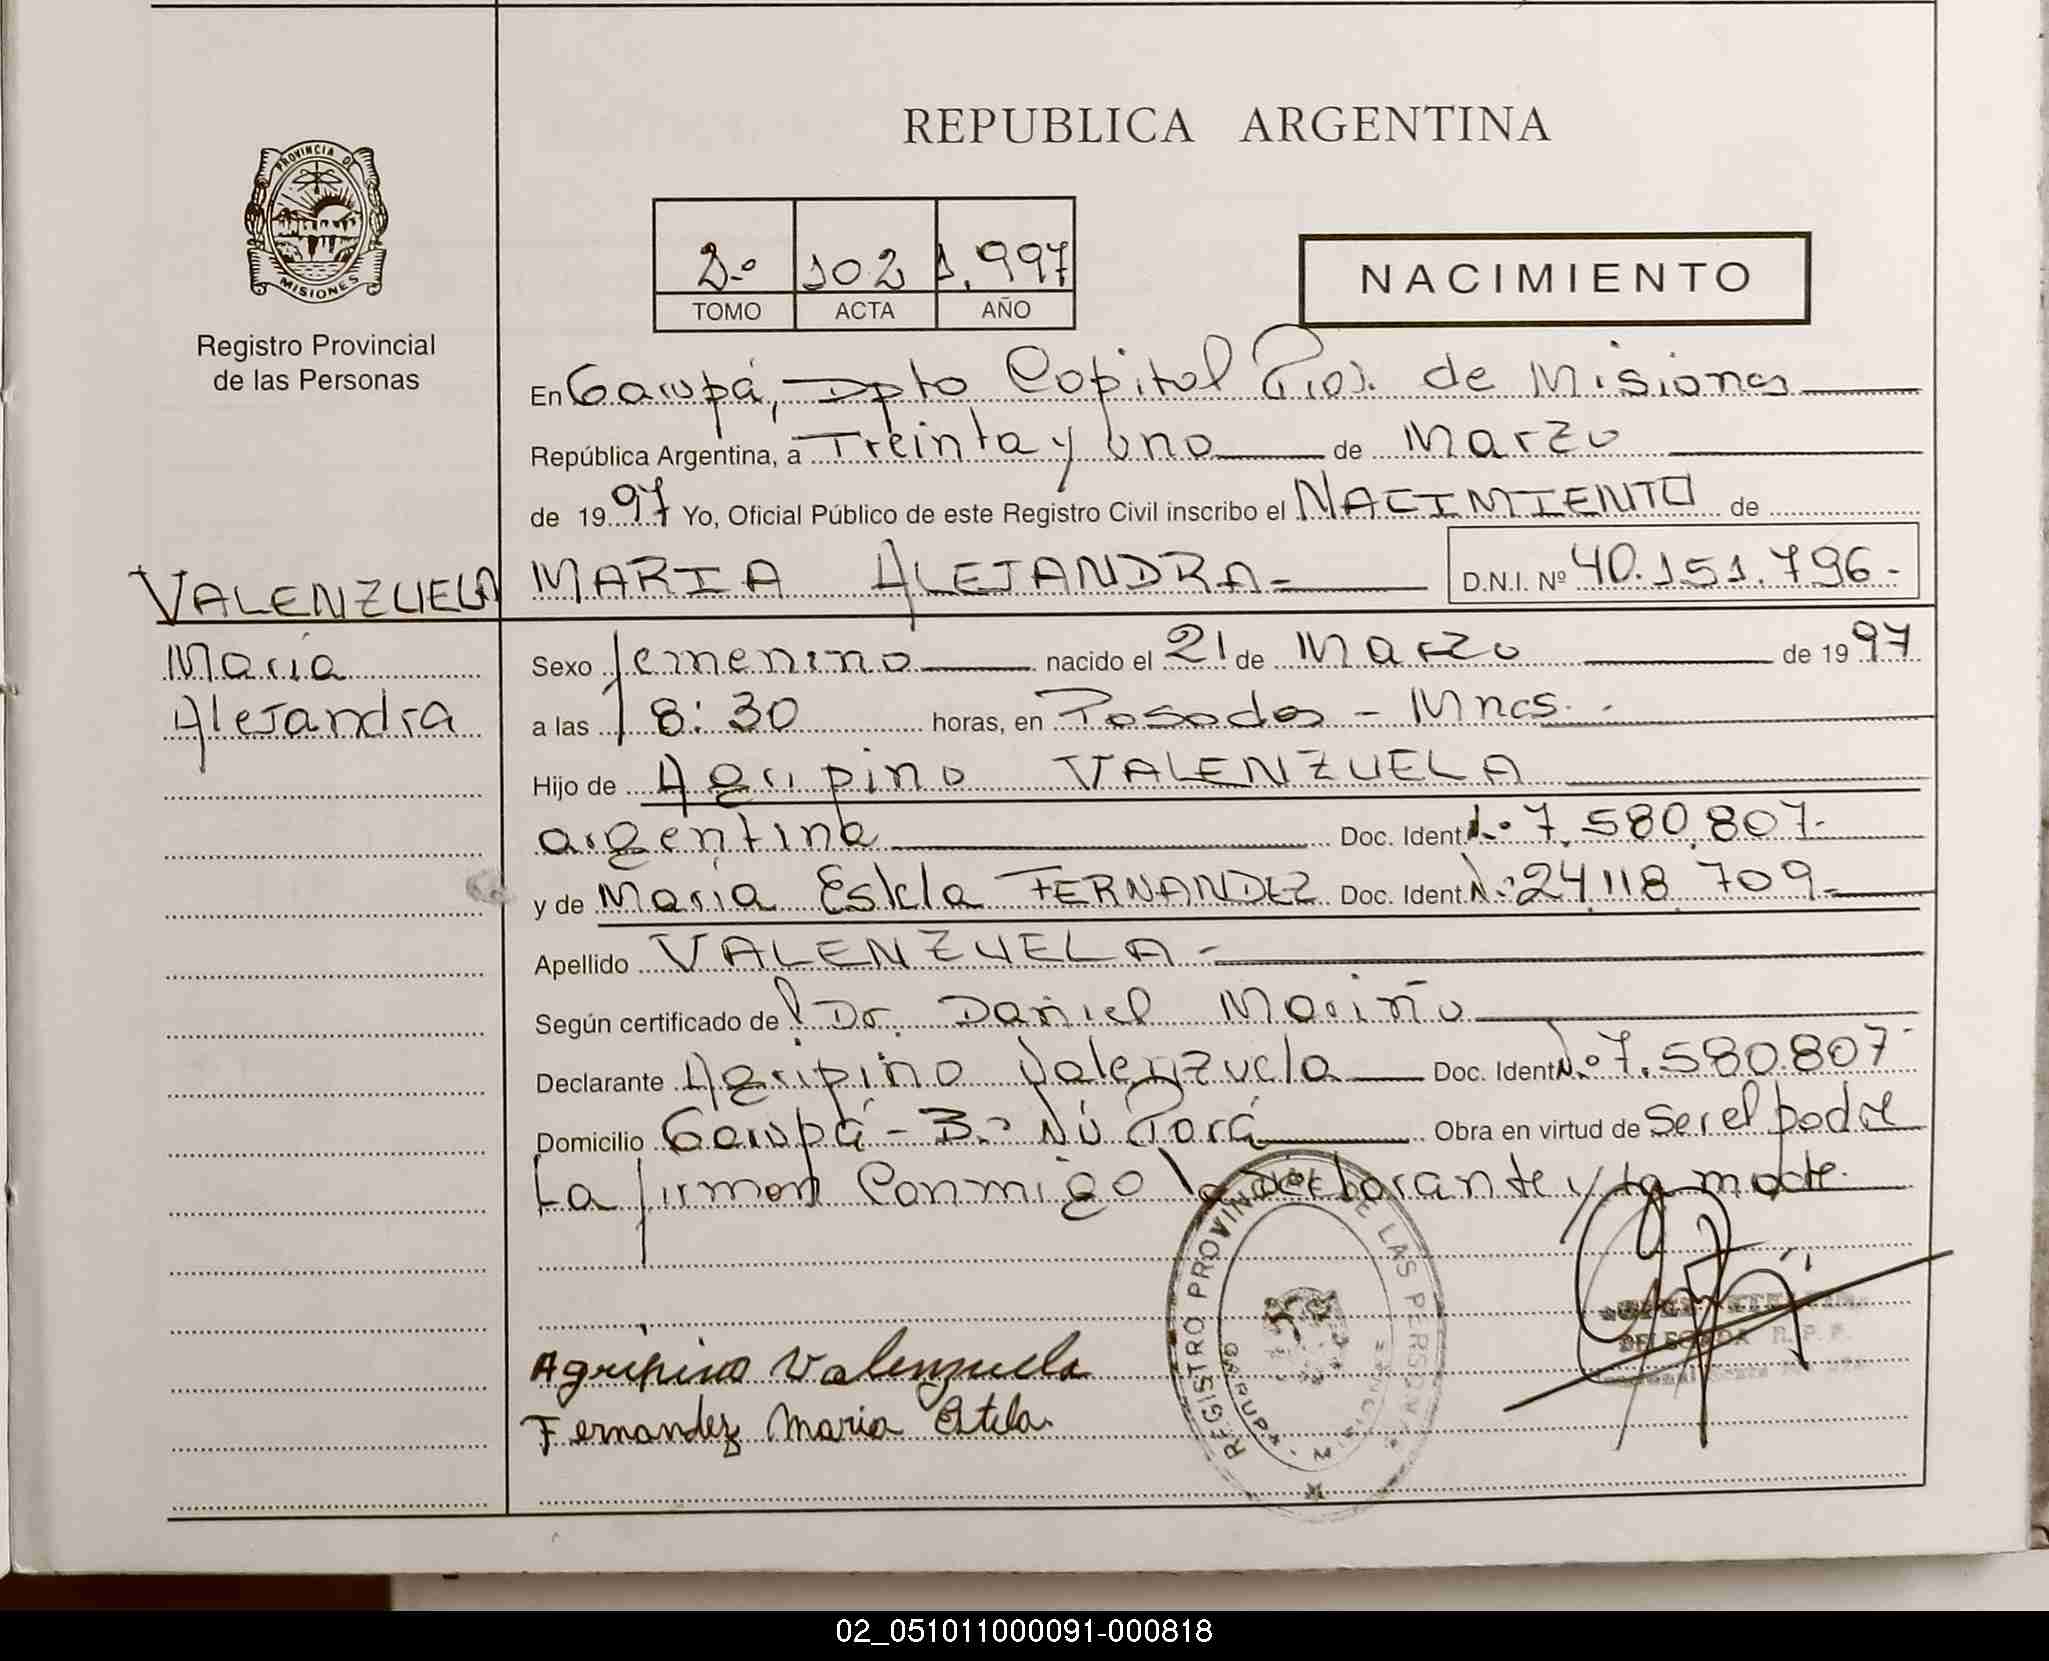 REPUBLICA ARGENTINA
PROVINCIA DE
MISIONES
Registro Provincial
de las Personas
2.º 102 1.997
TOMO ACTA AÑO
NACIMIENTO
En Garupá, Dpto Capital Prov. de Misiones
República Argentina, a Treinta y uno de Marzo
de 1997 Yo, Oficial Público de este Registro Civil inscribo el NACIMIENTO de
VALENZUELA MARIA ALEJANDRA= D.N.I. Nº 40.151.796.-
Maria
Alejandra
Sexo femenino nacido el 21 de Marzo de 1997
a las 18:30 horas, en Posadas - Mnes.
Hijo de Agripino VALENZUELA
argentina Doc. Ident. N.º 7.580.807.-
y de María Estela FERNANDEZ Doc. Ident. N.º 24.118.709.=
Apellido VALENZUELA -
Según certificado de Dr. Daniel Mariño
Declarante Agripino Valenzuela Doc. Ident. N.º 7.580.807-
Domicilio Garupá - B.º Ñú Porá Obra en virtud de Ser el padre
La firman Conmigo declarante y la madre.
REGISTRO PROVINCIAL DE LAS PERSONAS
GARUPA - MISIONES
DELEGADA R. P. P.
Agripino Valenzuela
Fernandez Maria Estela.
02_051011000091-000818